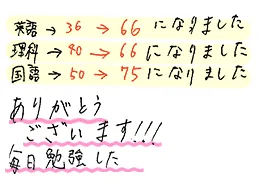 英語→36→66になりました
理科→40→66になりました
国語→50→75になりました
ありがとう
ございます!!!
毎日勉強した